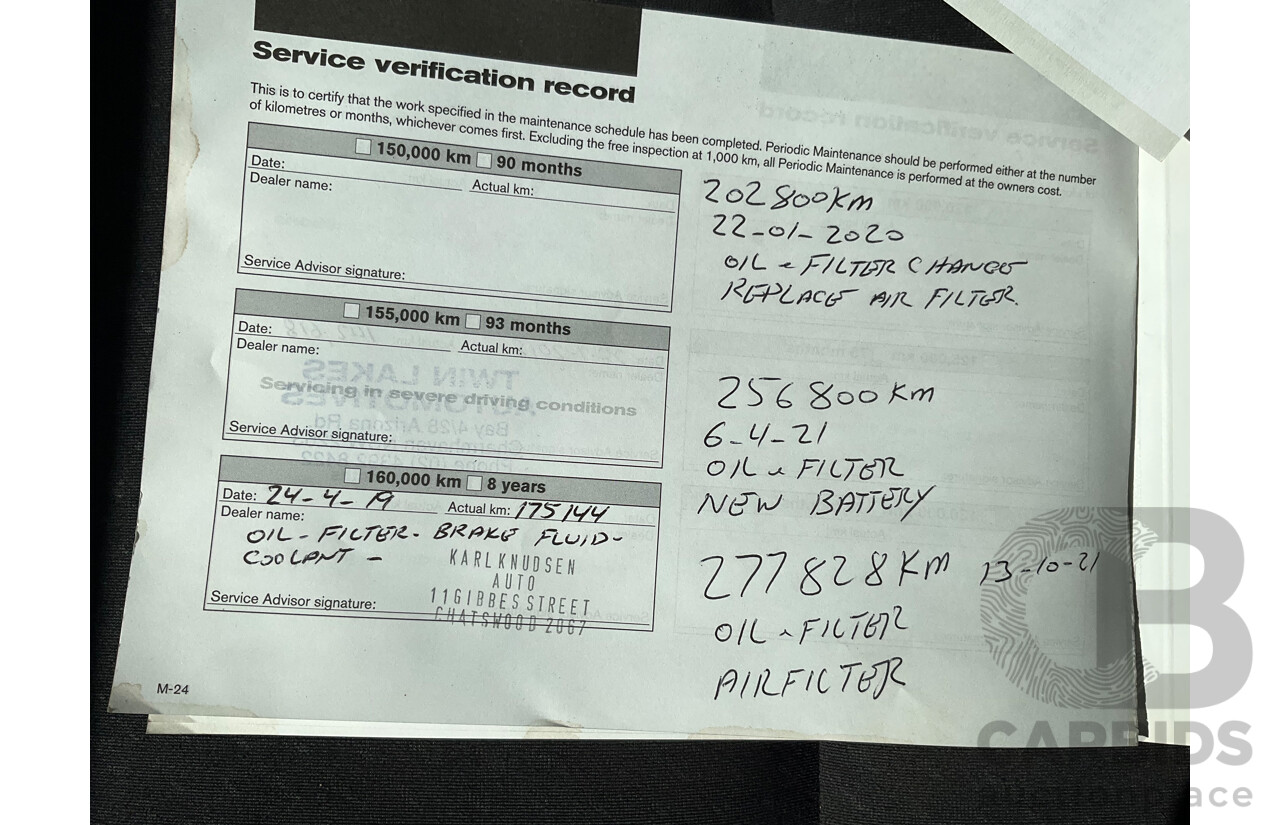 Service verification record
This is to certify that the work specified in the maintenance schedule has been completed. Periodic Maintenance should be performed either at the number
of kilometres or months, whichever comes first. Excluding the free inspection at 1,000 km, all Periodic Maintenance is performed at the owners cost.
150,000 km 90 months
Date:
Actual km:
Dealer name:
Service Advisor signature:
155,000 km 93 months
Date:
Actual km:
Dealer name:
Servicing in severe driving conditions
Service Advisor signature:
160,000 km 8 years
Date: 24-4-19 Actual km: 175144
Dealer name:
OIL - FILTER - BRAKE FLUID -
COOLANT -
KARL KNUDSEN
AUTO
11 GIBBES STREET
CHATSWOOD 2067
Service Advisor signature:
M-24
202800KM
22-01-2020
OIL & FILTER CHANGE
REPLACE AIR FILTER.
256800KM
6-4-21
OIL & FILTER
NEW BATTERY
277828KM 13-10-21
OIL & FILTER
AIRFILTER
TWIN LAKES
AUTOMOTIVES
Bay 4/28 Arizona Rd
CARBIDS